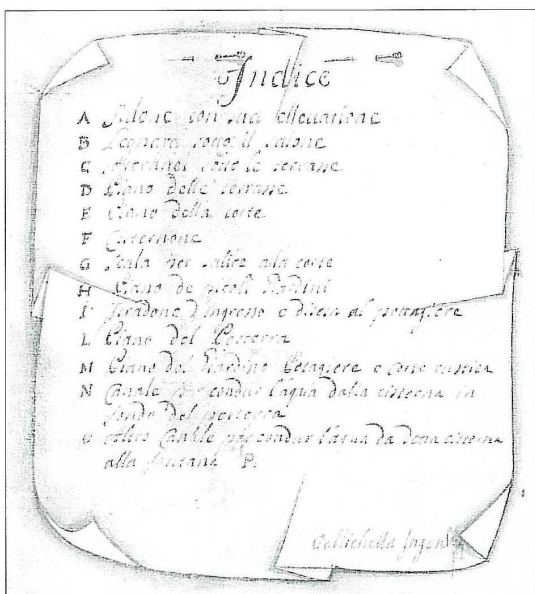 Indice
A Salone con sua ellevatione
B Legnara sotto il salone
C sotto le terrasse
D Piano delle terrasse
E Piano della corte
F Cisternone
G Scala per salire ala corte
H Piano de picoli Giardini
I Stradone d'ingresso e discesa al pottagiere
L Piano del Perterra
M Piano del Giardino Potagiere e corte rustica
N Canale per condur l'aqua dalla cisterna in
fondo del perterra
O altro Canale per condur l'aqua da detta cisterna
alla fontana P.